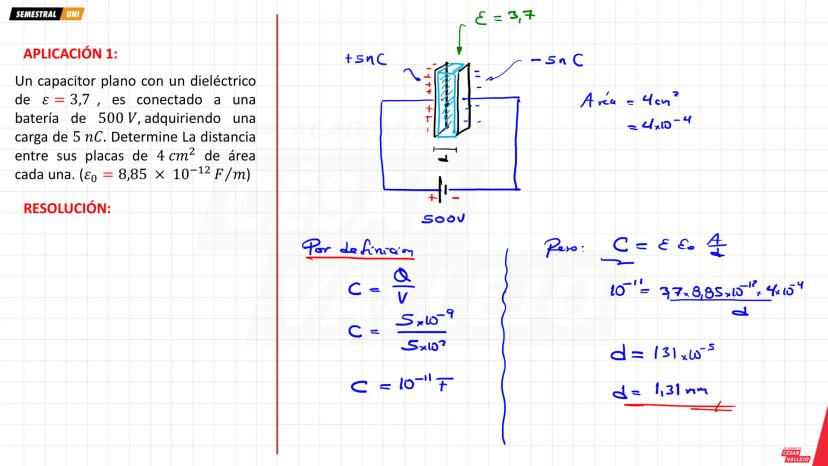 SEMESTRAL UNI
APLICACIÓN 1:
Un capacitor plano con un dieléctrico
de ε = 3,7 , es conectado a una
batería de 500 V, adquiriendo una
carga de 5 nC. Determine La distancia
entre sus placas de 4 cm² de área
cada una. (ε₀ = 8,85 × 10⁻¹² F/m)
RESOLUCIÓN:
ε = 3,7
+5nC
-5nC
Area = 4cm²
= 4x10⁻⁴
d
+ -
500V
Por definicion
C = Q/V
C = 5x10⁻⁹/5x10²
C = 10⁻¹¹ F
Pero: C = ε ε₀ A/d
10⁻¹¹ = 3,7x8,85x10⁻¹²x4x10⁻⁴/d
d = 131x10⁻⁵
d = 1,31mm
CESAR
VALLEJO